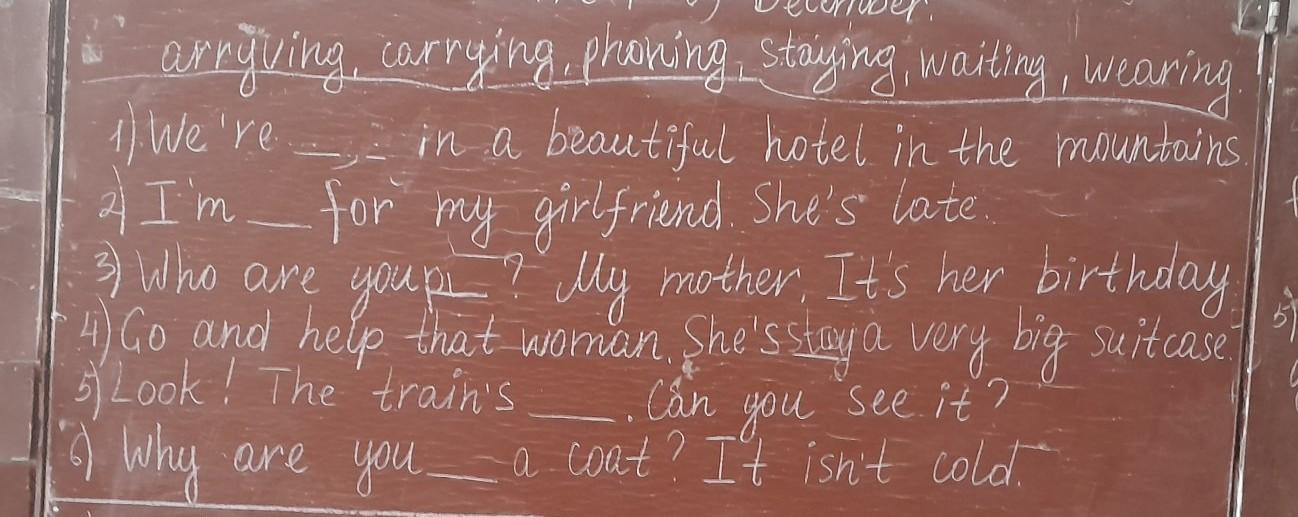 December.
arryving, carrying, phoning, staying, waiting, wearing.
1) We're ____ in a beautiful hotel in the mountains.
2) I'm ___ for my girlfriend. She's late.
3) Who are you p___? My mother. It's her birthday.
4) Go and help that woman. She's stay a very big suitcase.
5) Look! The train's ____. Can you see it?
6) Why are you ___ a coat? It isn't cold.